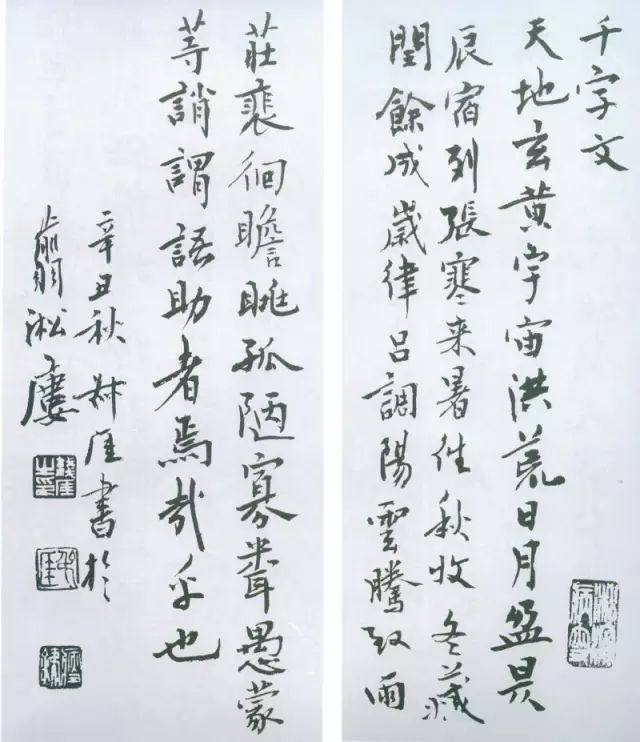 千字文
天地玄黄宇宙洪荒日月盈昃
辰宿列張寒来暑往秋收冬藏
閏餘成歲律呂調陽雲騰致雨
莊裴徊瞻眺孤陋寡聞愚蒙
等誚謂語助者焉哉乎也
辛丑秋叔厓書於
翁淞